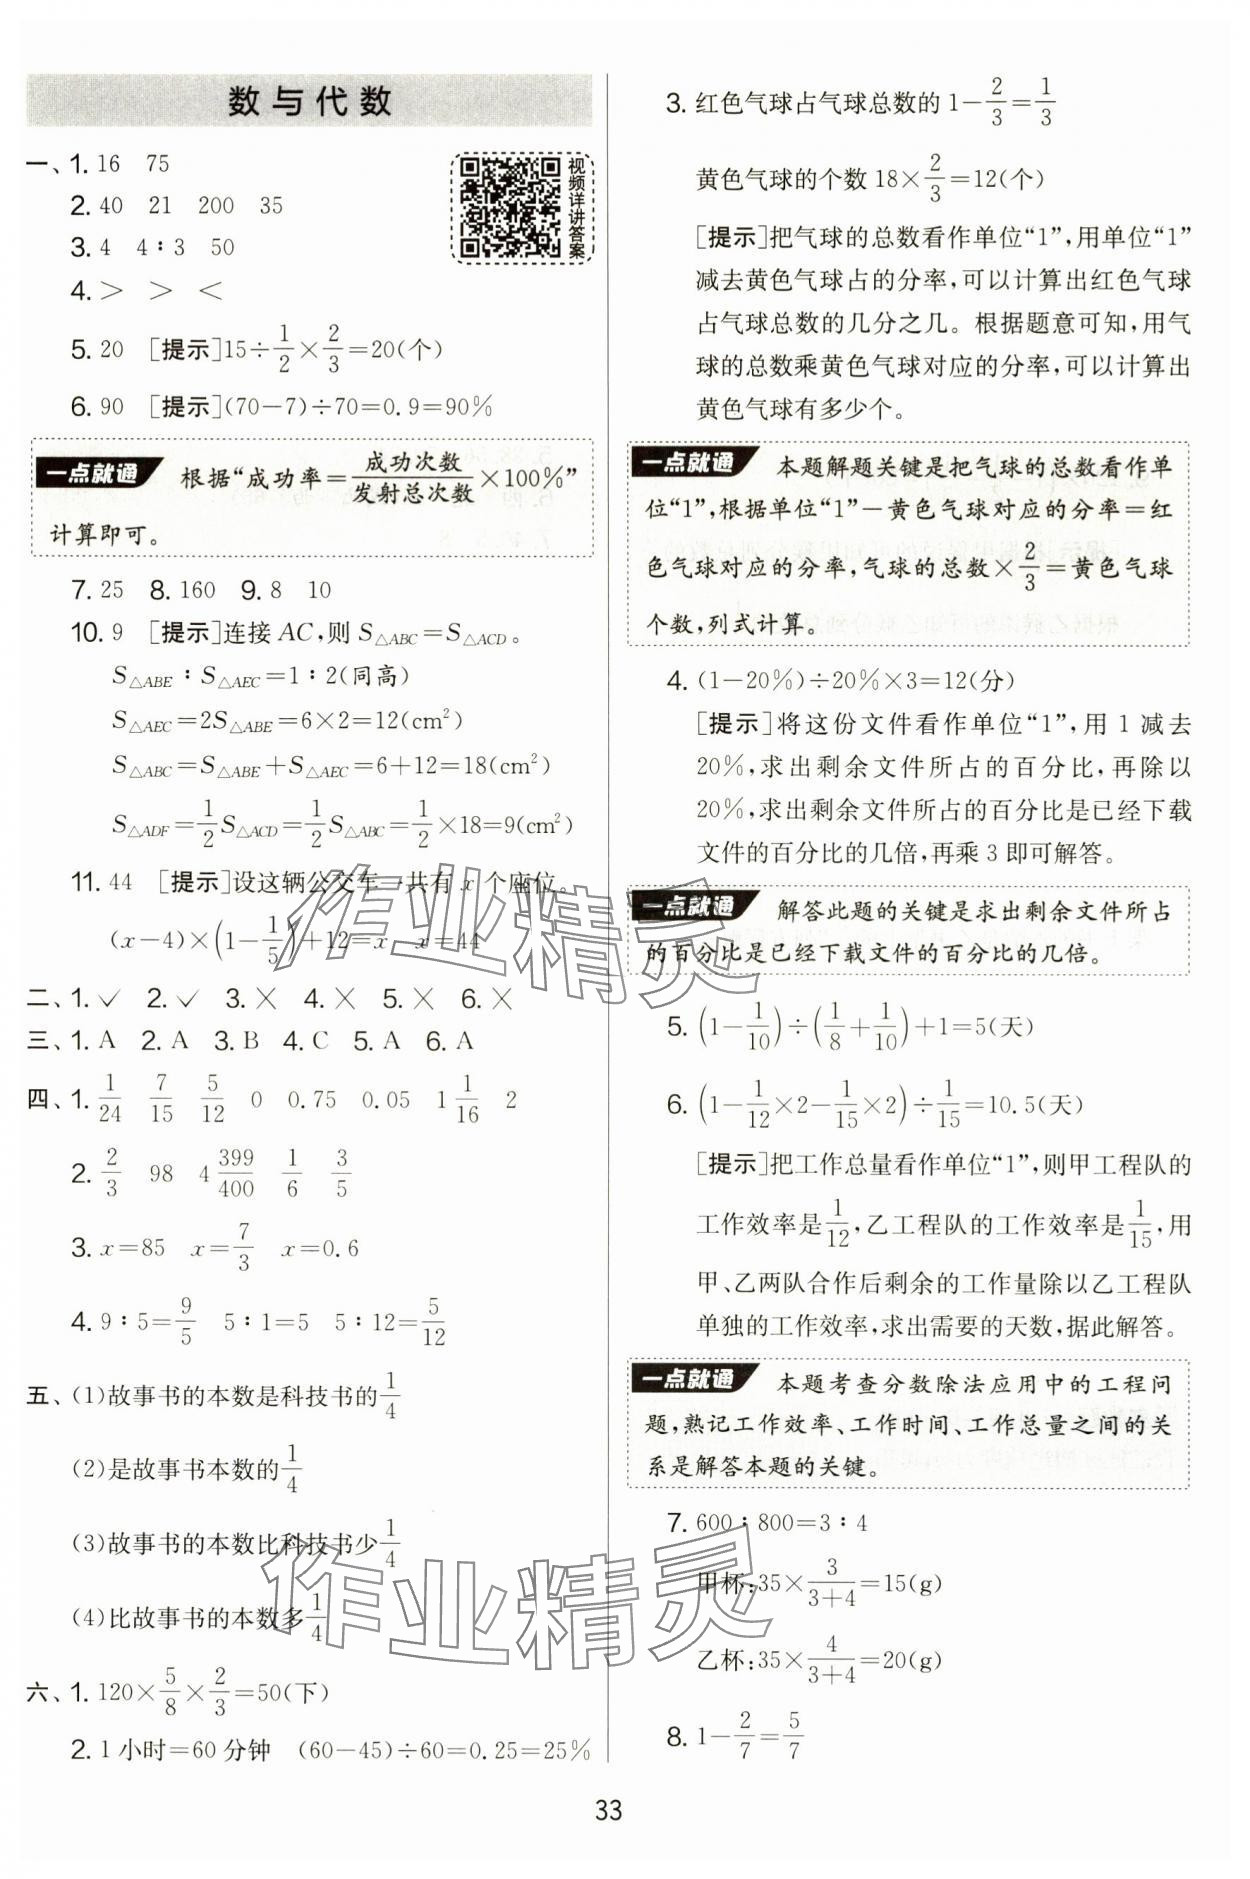 数与代数
一、1. 16 75
视频详讲答案
2. 40 21 200 35
3. 4 4∶3 50
4. > > <
5. 20 [提示]15÷1/2×2/3=20(个)
6. 90 [提示](70-7)÷70=0.9=90%
一点就通 根据“成功率=成功次数/发射总次数×100%”
计算即可。
7. 25 8. 160 9. 8 10
10. 9 [提示]连接 AC,则 S△ABC=S△ACD。
S△ABE∶S△AEC=1∶2(同高)
S△AEC=2S△ABE=6×2=12(cm²)
S△ABC=S△ABE+S△AEC=6+12=18(cm²)
S△ADF=1/2S△ACD=1/2S△ABC=1/2×18=9(cm²)
11. 44 [提示]设这辆公交车一共有 x 个座位。
(x-4)×(1-1/5)+12=x x=44
二、1. ✓ 2. ✓ 3. × 4. × 5. × 6. ×
三、1. A 2. A 3. B 4. C 5. A 6. A
四、1. 1/24 7/15 5/12 0 0.75 0.05 1 1/16 2
2. 2/3 98 4 399/400 1/6 3/5
3. x=85 x=7/3 x=0.6
4. 9∶5=9/5 5∶1=5 5∶12=5/12
五、(1)故事书的本数是科技书的1/4
(2)是故事书本数的1/4
(3)故事书的本数比科技书少1/4
(4)比故事书的本数多1/4
六、1. 120×5/8×2/3=50(下)
2. 1小时=60分钟 (60-45)÷60=0.25=25%
3. 红色气球占气球总数的 1-2/3=1/3
黄色气球的个数 18×2/3=12(个)
[提示]把气球的总数看作单位“1”,用单位“1”
减去黄色气球占的分率,可以计算出红色气球
占气球总数的几分之几。根据题意可知,用气
球的总数乘黄色气球对应的分率,可以计算出
黄色气球有多少个。
一点就通 本题解题关键是把气球的总数看作单
位“1”,根据单位“1”-黄色气球对应的分率=红
色气球对应的分率,气球的总数×2/3=黄色气球
个数,列式计算。
4. (1-20%)÷20%×3=12(分)
[提示]将这份文件看作单位“1”,用 1 减去
20%,求出剩余文件所占的百分比,再除以
20%,求出剩余文件所占的百分比是已经下载
文件的百分比的几倍,再乘 3 即可解答。
一点就通 解答此题的关键是求出剩余文件所占
的百分比是已经下载文件的百分比的几倍。
5. (1-1/10)÷(1/8+1/10)+1=5(天)
6. (1-1/12×2-1/15×2)÷1/15=10.5(天)
[提示]把工作总量看作单位“1”,则甲工程队的
工作效率是1/12,乙工程队的工作效率是1/15,用
甲、乙两队合作后剩余的工作量除以乙工程队
单独的工作效率,求出需要的天数,据此解答。
一点就通 本题考查分数除法应用中的工程问
题,熟记工作效率、工作时间、工作总量之间的关
系是解答本题的关键。
7. 600∶800=3∶4
甲杯:35×3/(3+4)=15(g)
乙杯:35×4/(3+4)=20(g)
8. 1-2/7=5/7
33
作业精灵
作业精灵